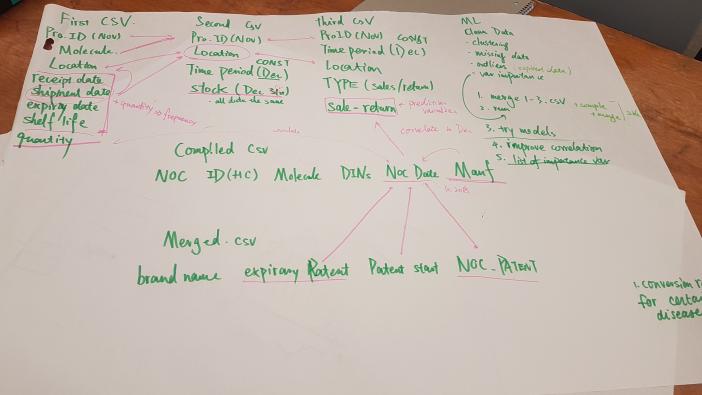 First CSV.
Pro.ID (Nov)
Molecule.
Location
receipt date
shipment date
expiry date
shelf life
quantity
+quantity => frequency
Second CSV
Pro.ID (Nov)
Location
CONST
Time period (Dec)
stock (Dec 31)
- all data the same
third CSV
Pro ID (Nov)
CONST
Time period (Dec)
Location
TYPE (sales/return)
sale-return
prediction variable
correlate
ML
Clean Data
- clustering
- missing data
- outliers
- var importance
1. merge 1-3.csv
2. run
3. try models
4. improve correlation
5. list of importance var
Compiled CSV
NOC ID(HC) Molecule DINs NOC Date Manf
Merged.csv
brand name expirary Patent Patent start NOC_PATENT
1. conversion
for certa
disease